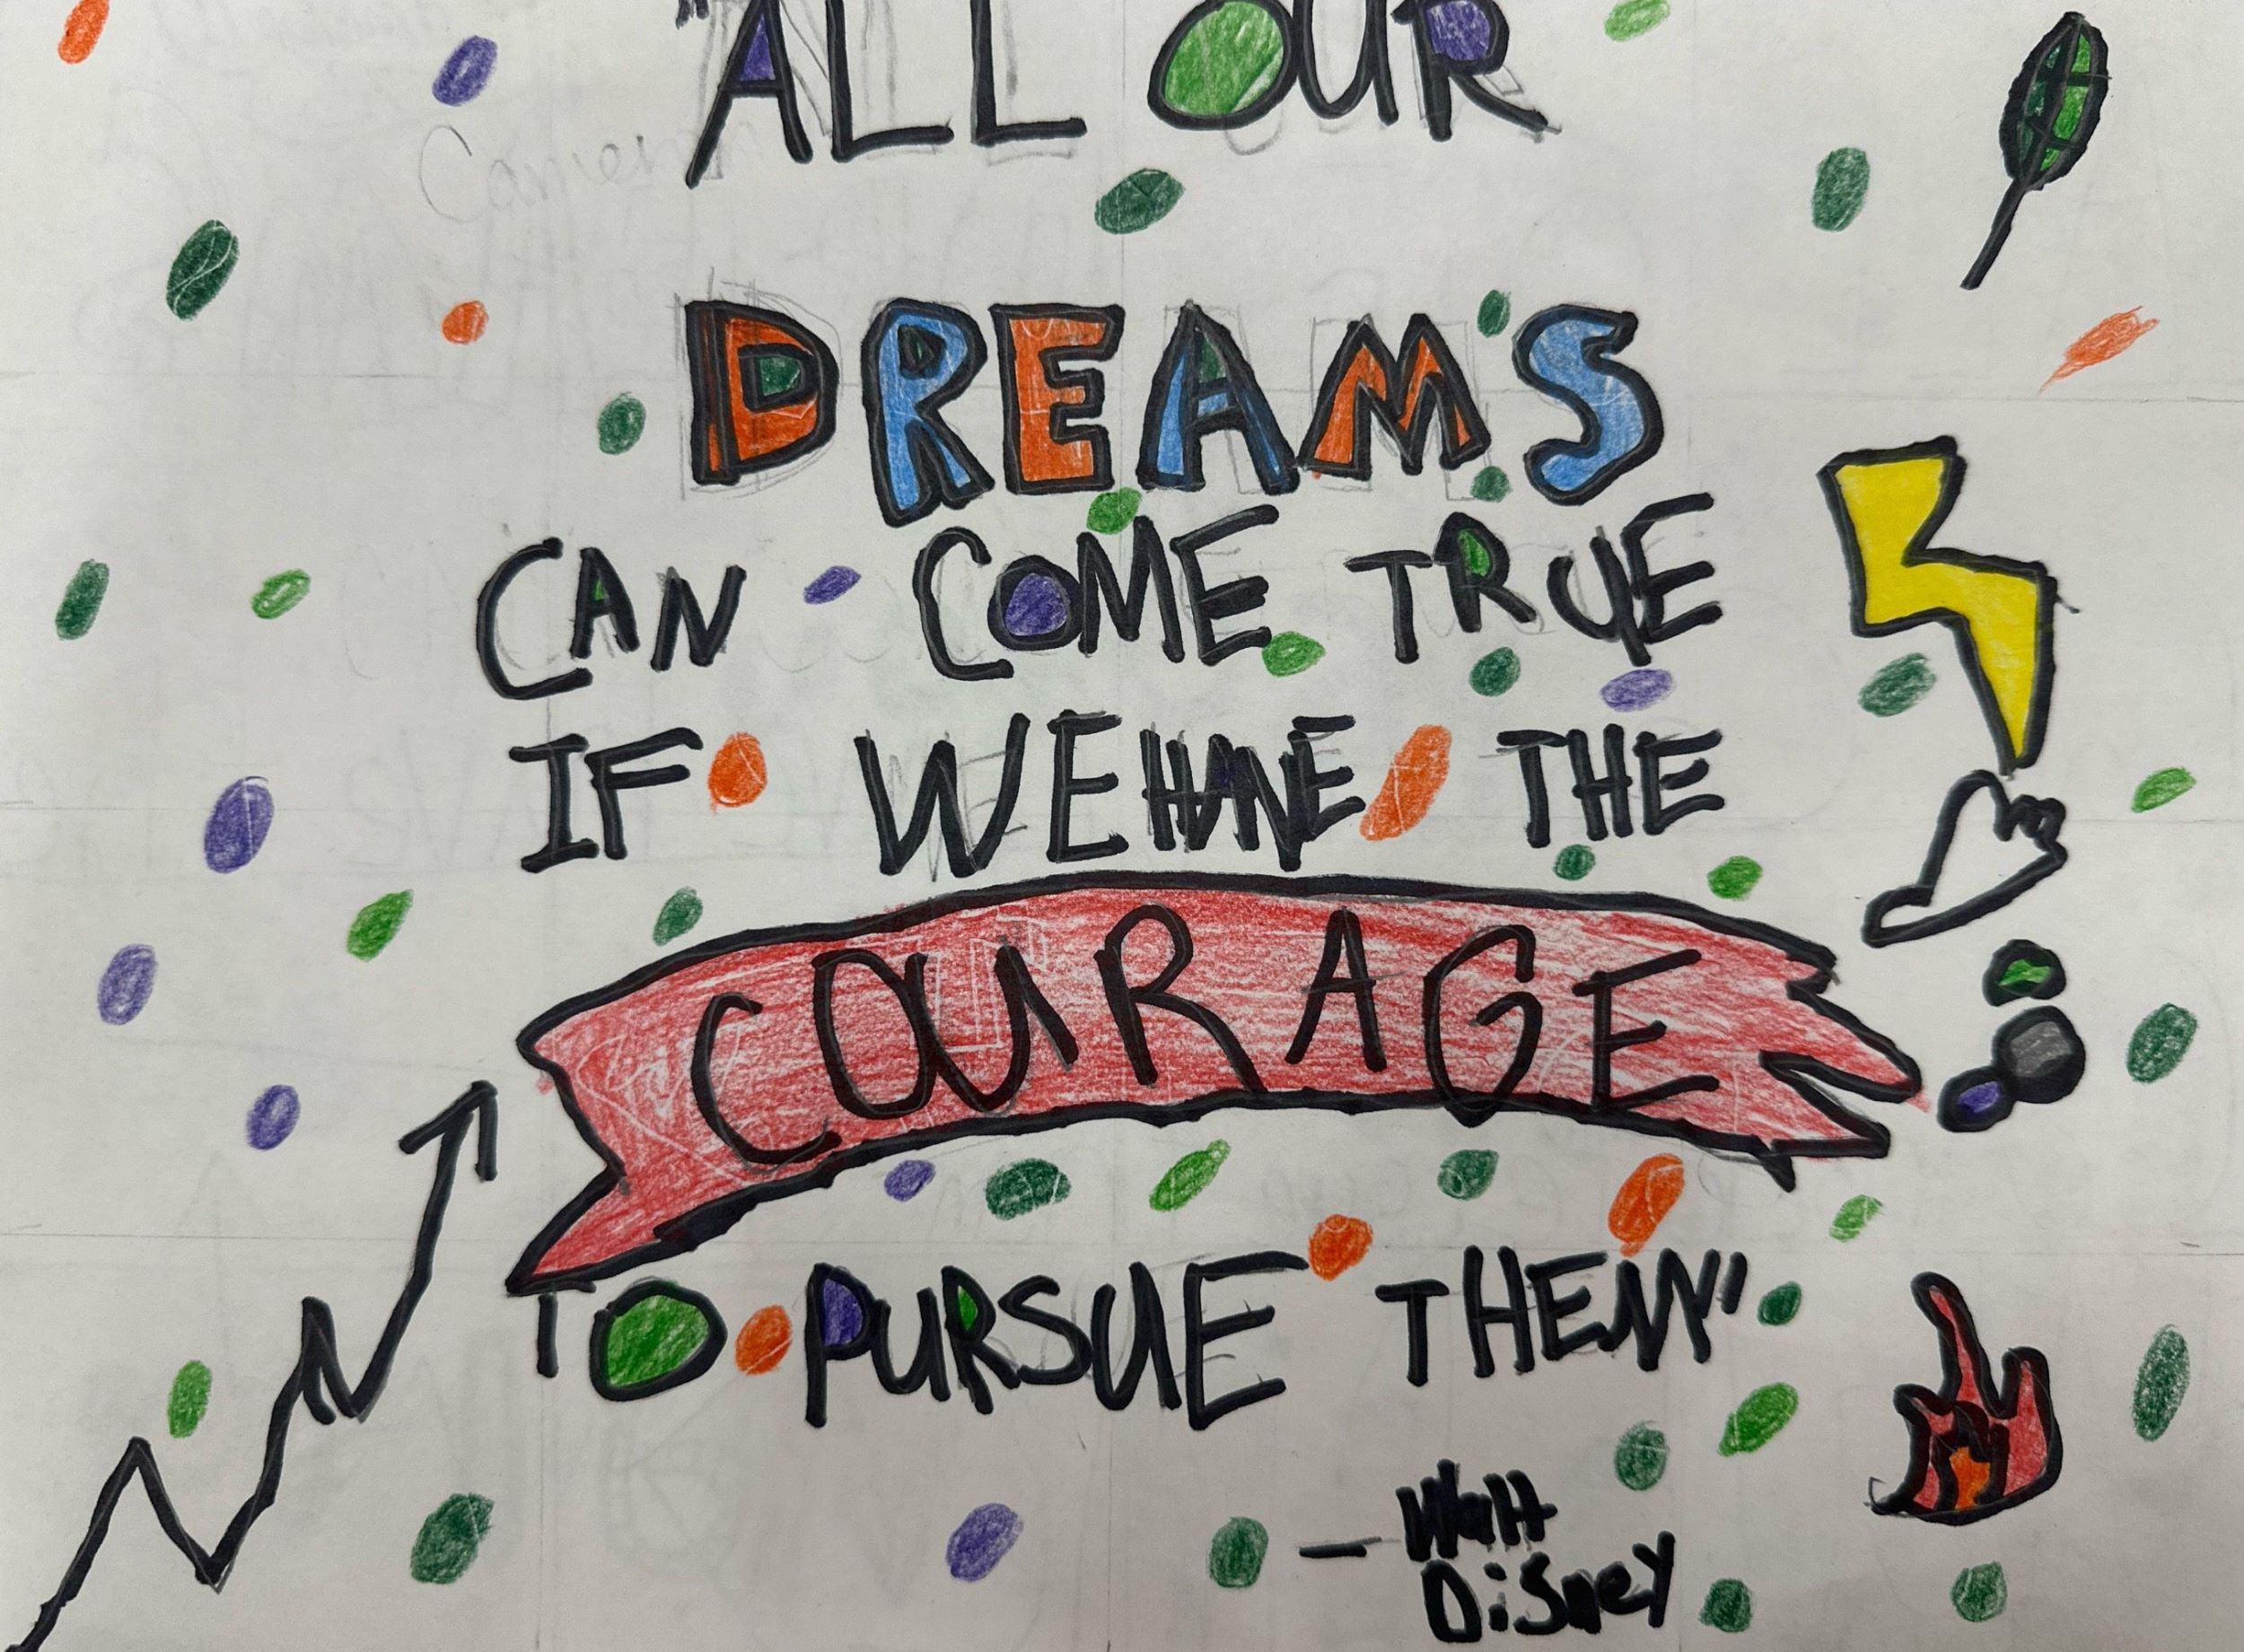 "ALL OUR
Cameron
DREAMS
CAN COME TRUE
IF WE HAVE THE
COURAGE
TO PURSUE THEM"
— Walt
DiSney